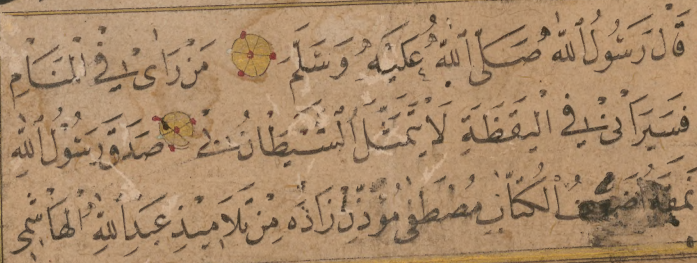 قَالَ رَسُولُ اللّٰهِ صَلَّى اللّٰهُ عَلَيْهِ وَسَلَّمَ مَنْ رَاٰنِي فِي الْمَنَامِ
فَسَيَرَانِي فِي الْيَقَظَةِ لَا يَتَمَثَّلُ الشَّيْطَانُ بِي صَدَقَ رَسُولُ اللّٰهِ
نَمَقَهُ اَضْعَفُ الْكُتَّابِ مُصْطَفٰى مُؤَذِّنْ زَادَه مِنْ تَلَامِيذِ عَبْدِ اللّٰهِ الْهَاشِمِي